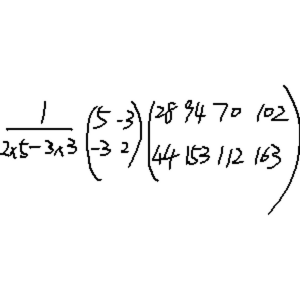 1
2×5-3×3
(5 -3
-3 2)
(28 94 70 102
44 153 112 163)